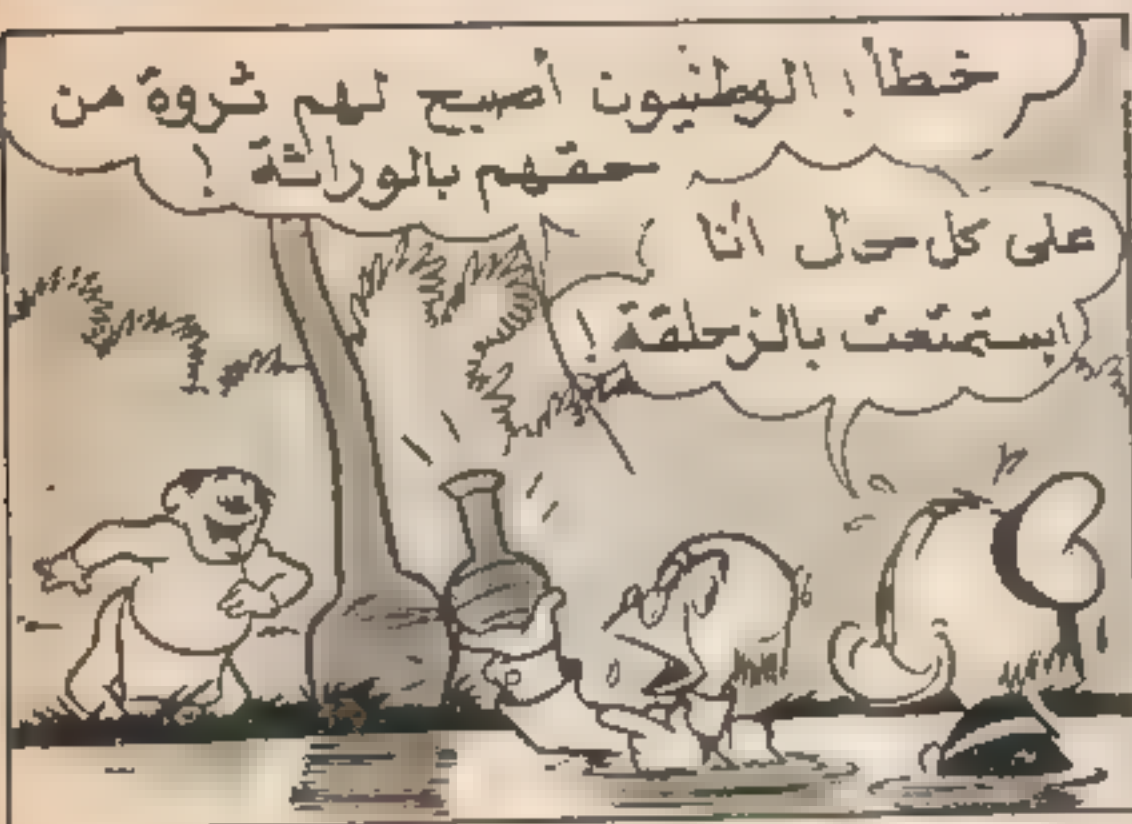 خطأ ! الوطنيون أصبح لهم ثروة من
حقهم بالوراثة !
على كل حال أنا
استمتعت بالزحلقة !